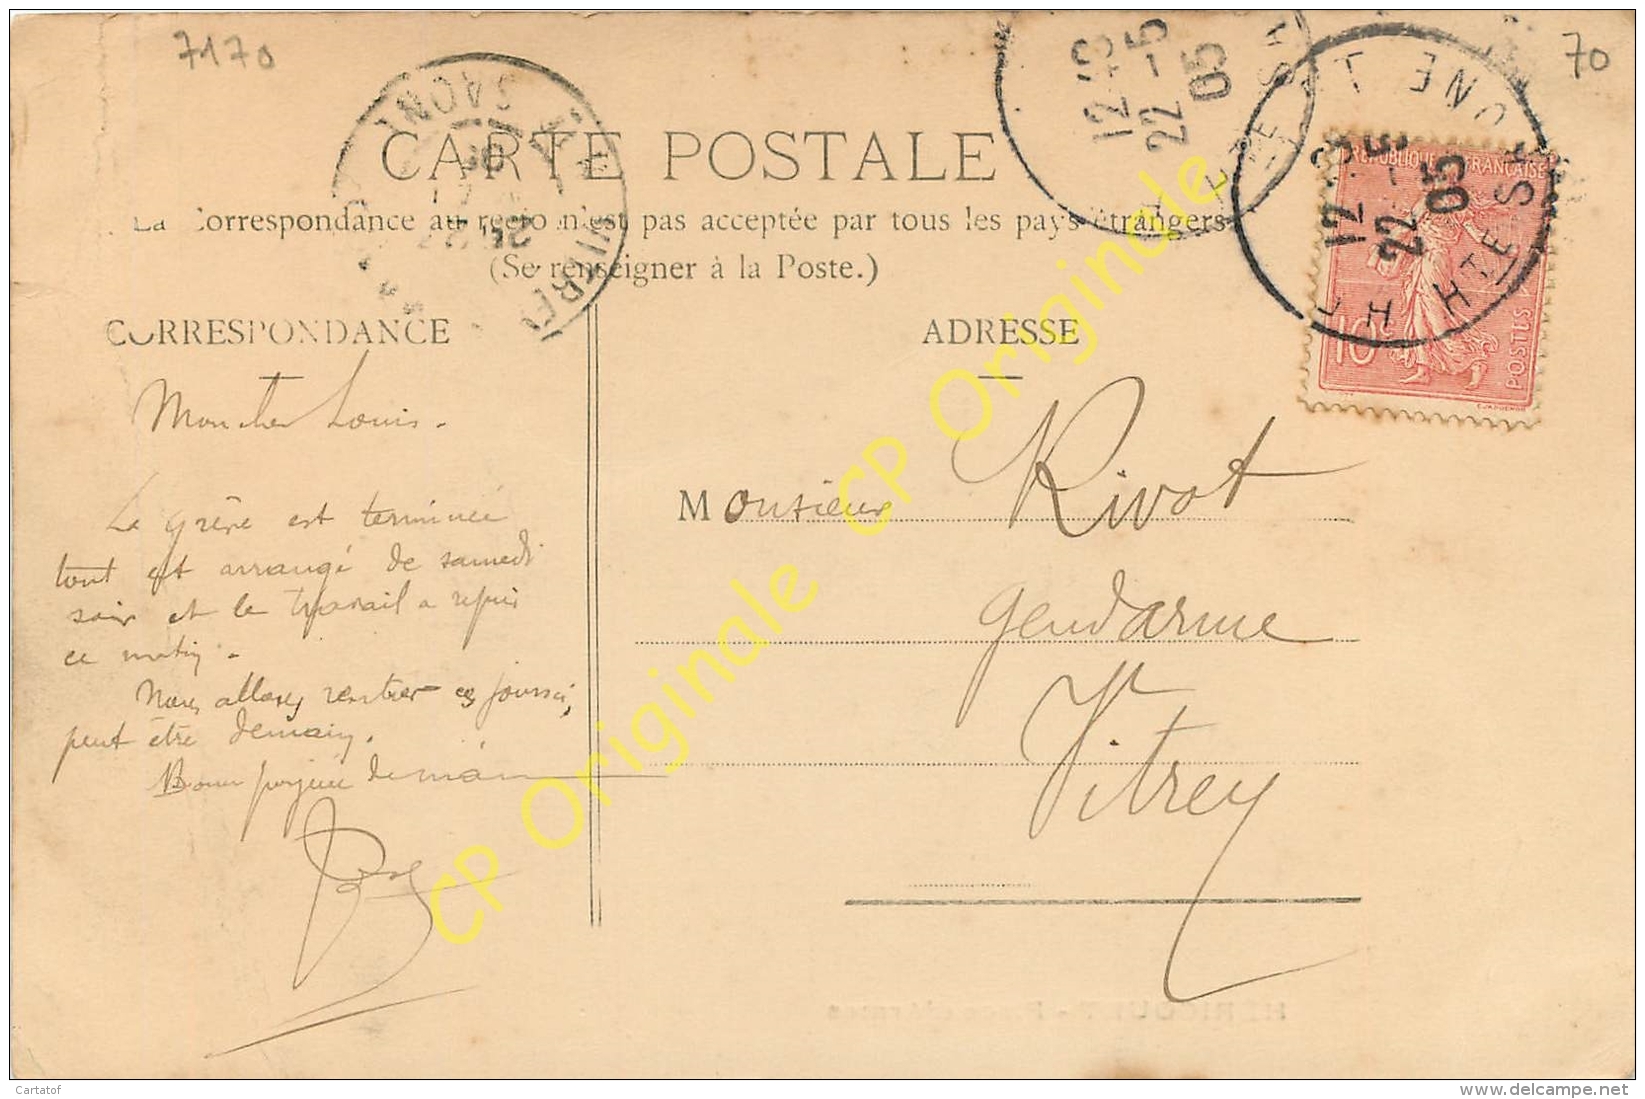 7170
70
CARTE POSTALE
La Correspondance au recto n'est pas acceptée par tous les pays étrangers
(Se renseigner à la Poste.)
CORRESPONDANCE
ADRESSE
12-45
22-5
05
HTE SA
12
22-5
05
HTE SA ONE
REPUBLIQUE FRANÇAISE
10c
POSTES
Mon cher Louis.
La grève est terminée
tout est arrangé de samedi
soir et le travail a repris
ce matin.
Nous allons rentrer ces jours ci,
peut être demain.
Bonne poignée de main
Monsieur Rivot
gendarme
Vitrey
CP Originale CP Originale
HÉRICOURT - Place d'Armes
Cartatof
www.delcampe.net